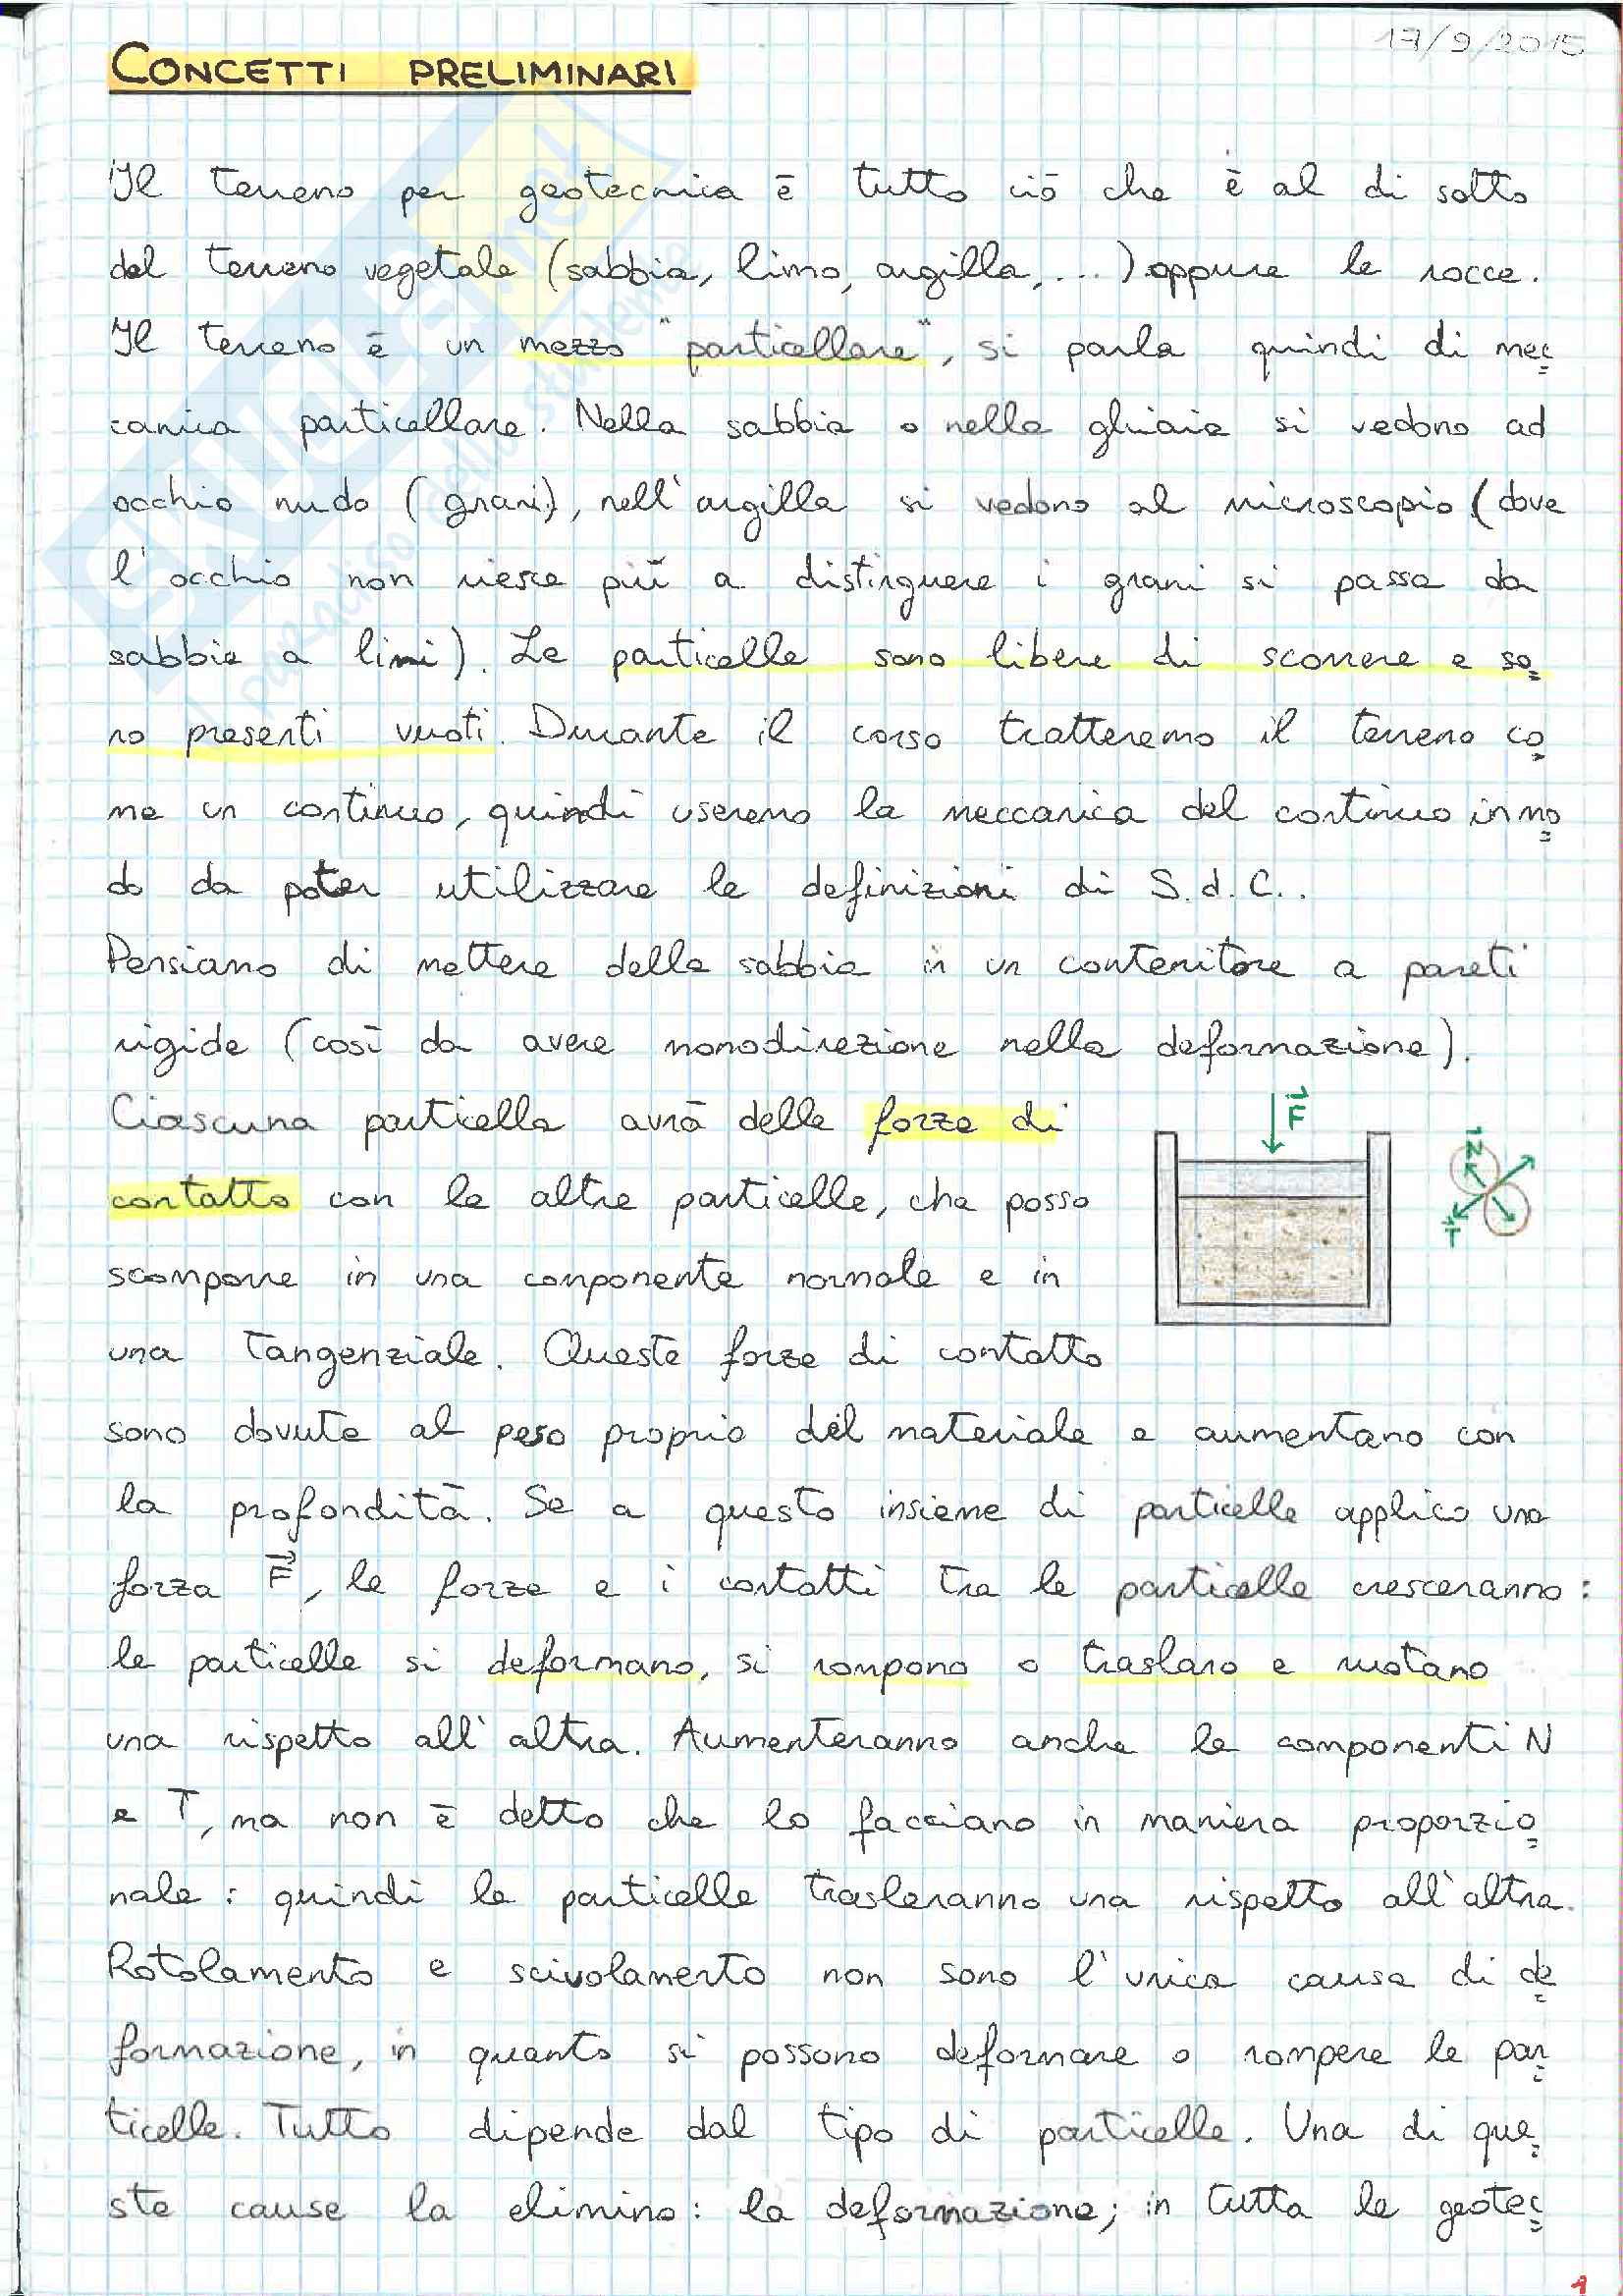 17/9/2015
CONCETTI PRELIMINARI
Il terreno per geotecnica è tutto ciò che è al di sotto
del terreno vegetale (sabbia, limo, argilla, ...) oppure le rocce.
Il terreno è un mezzo "particellare", si parla quindi di mec
canica particellare. Nella sabbia o nella ghiaia si vedono ad
occhio nudo (grani), nell'argilla si vedono al microscopio (dove
l'occhio non riesce più a distinguere i grani si passa da
sabbie a limi). Le particelle sono libere di scorrere e so
no presenti vuoti. Durante il corso tratteremo il terreno co
me un continuo, quindi useremo la meccanica del continuo in mo
do da poter utilizzare le definizioni di S.d.C..
Pensiamo di mettere della sabbia in un contenitore a pareti
rigide (così da avere monodirezione nella deformazione).
Ciascuna particella avrà delle forze di
contatto con le altre particelle, che posso
scomporre in una componente normale e in
una tangenziale. Queste forze di contatto
F
N
T
sono dovute al peso proprio del materiale e aumentano con
la profondità. Se a questo insieme di particelle applico una
forza F, le forze e i contatti tra le particelle cresceranno:
le particelle si deformano, si rompono o traslano e ruotano
una rispetto all'altra. Aumenteranno anche le componenti N
e T, ma non è detto che lo facciano in maniera proporzio
nale: quindi le particelle trasleranno una rispetto all'altra.
Rotolamento e scivolamento non sono l'unica causa di de
formazione, in quanto si possono deformare o rompere le par
ticelle. Tutto dipende dal tipo di particelle. Una di que
ste cause la elimino: la deformazione; in tutta la geotec
1